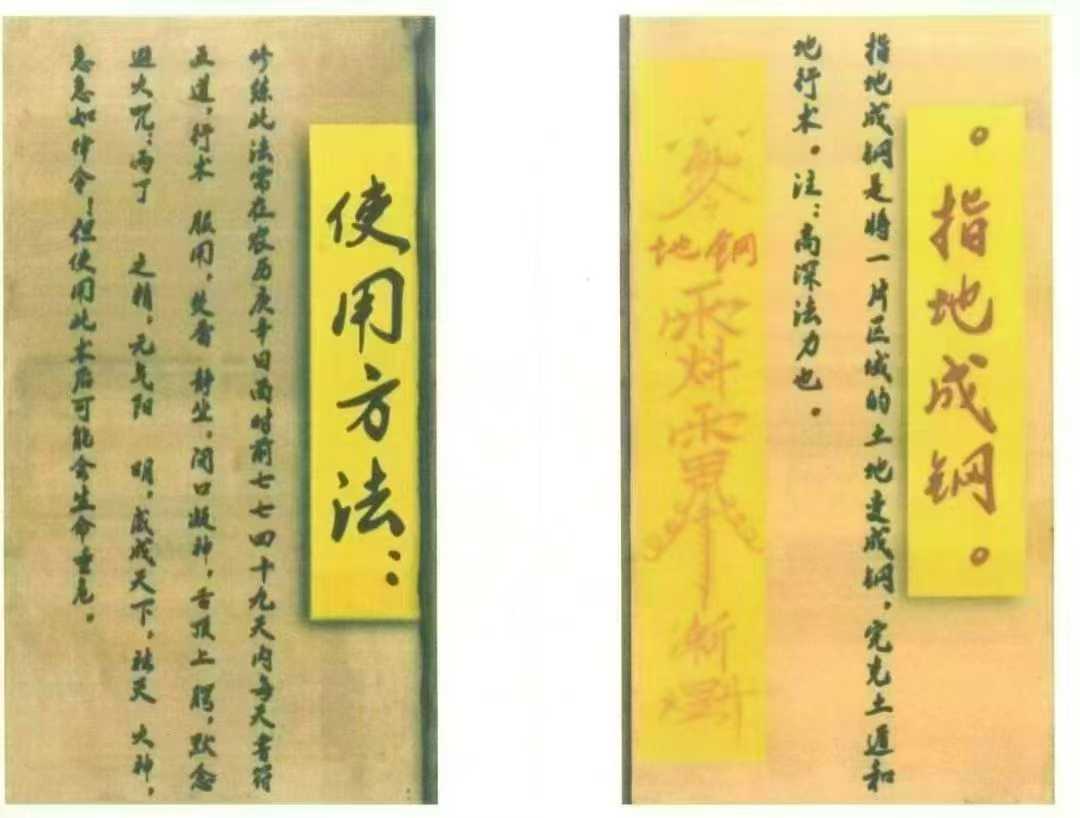 。指地成钢。
指地成钢是将一片区域的土地变成钢，完克土遁和
地行术。注：高深法力也。
地钢
使用方法：
修练此法需在农历庚辛日酉时前七七四十九天内每天书符
五道，行术 服用，焚香 静坐，闭口凝神，舌顶上腭，默念
避火咒：丙丁 之精，元气阳 明，威成天下，祛灭 火神，
急急如律令！但使用此术后可能会生命垂危。